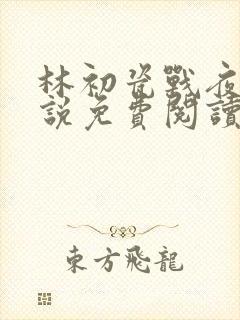 林初瓷戰夜
說免費閱讀
東方飛龍